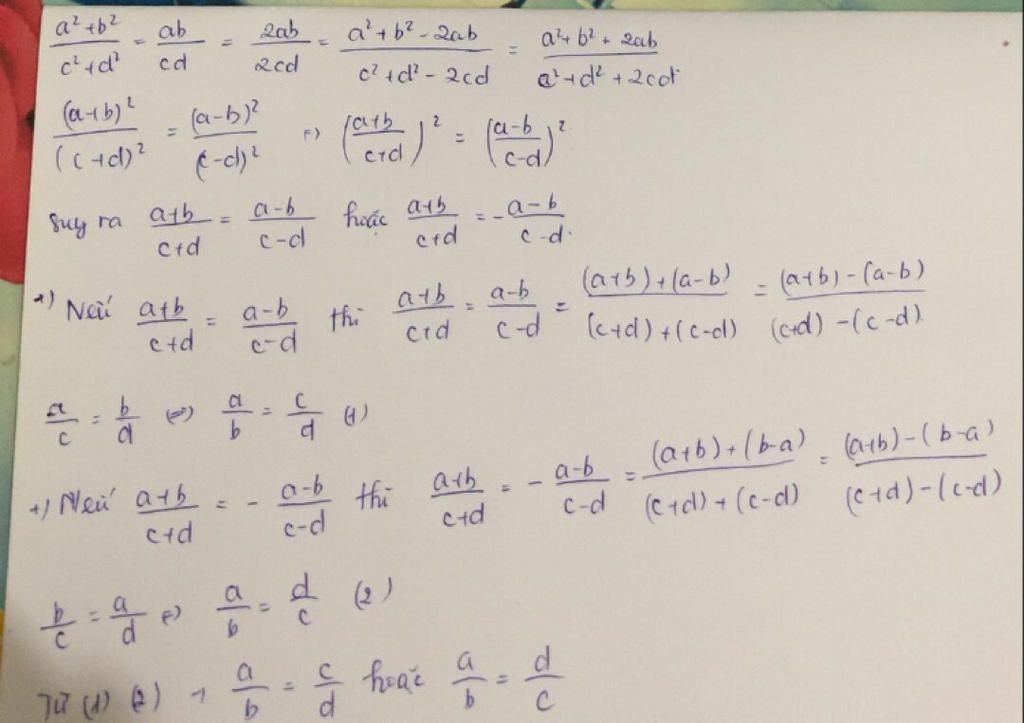 a²+b²/c²+d² = ab/cd = 2ab/2cd = a²+b²-2ab/c²+d²-2cd = a²+b²+2ab/a²+d²+2cd
(a+b)²/(c+d)² = (a-b)²/(c-d)² => (a+b/c+d)² = (a-b/c-d)²
Suy ra a+b/c+d = a-b/c-d hoặc a+b/c+d = -a-b/c-d.
*) Nếu a+b/c+d = a-b/c-d thì a+b/c+d = a-b/c-d = (a+b)+(a-b)/(c+d)+(c-d) = (a+b)-(a-b)/(c+d)-(c-d)
a/c = b/d <=> a/b = c/d (1)
+) Nếu a+b/c+d = - a-b/c-d thì a+b/c+d = - a-b/c-d = (a+b)+(b-a)/(c+d)+(c-d) = (a+b)-(b-a)/(c+d)-(c-d)
b/c = a/d => a/b = d/c (2)
Từ (1) (2) a/b = c/d hoặc a/b = d/c